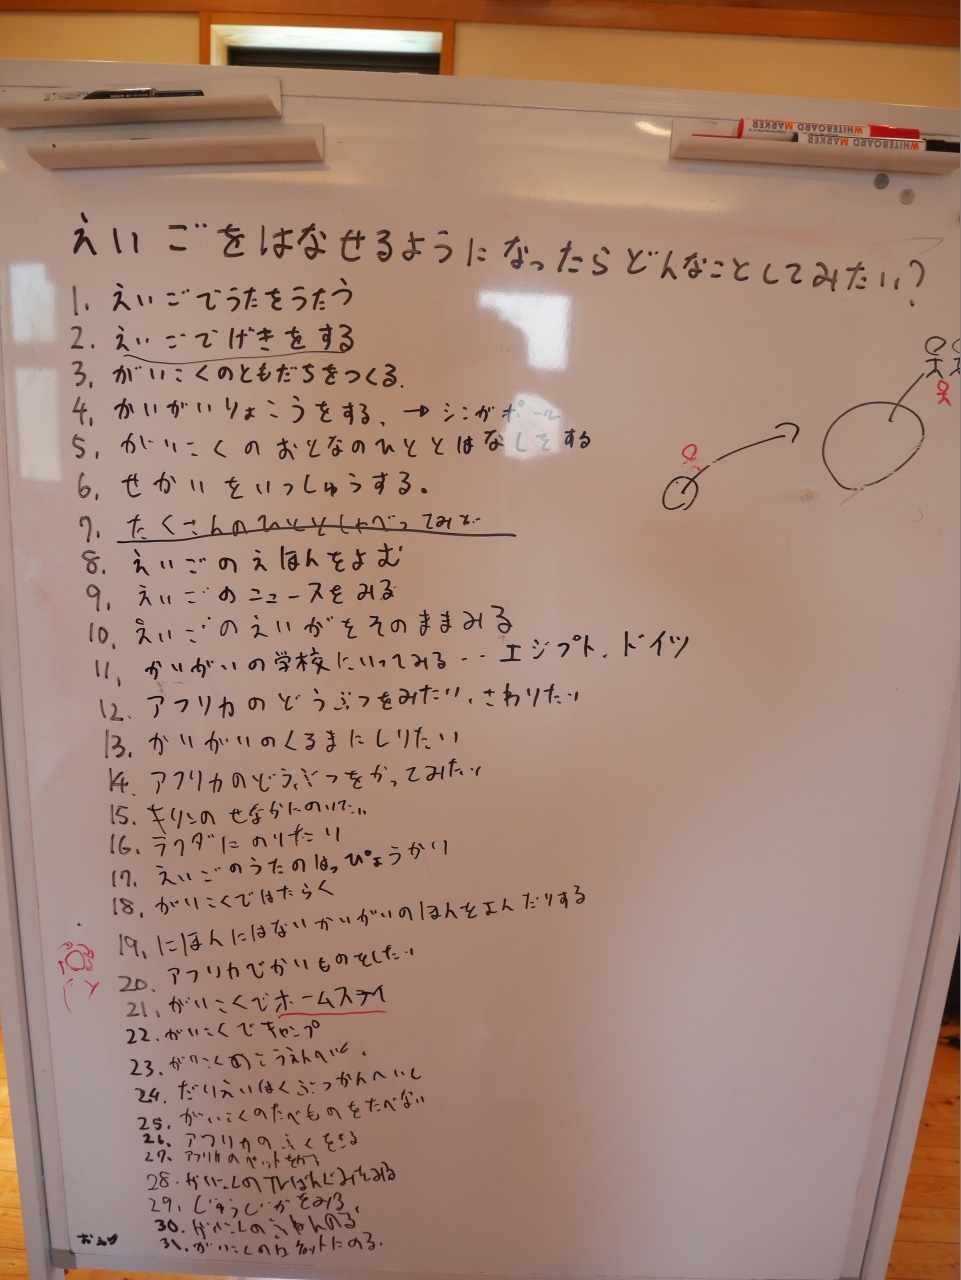 WHITEBOARD MARKER
WHITEBOARD MARKER
えいごをはなせるようになったらどんなことしてみたい?
1. えいごでうたをうたう
2. えいごでげきをする
3. がいこくのともだちをつくる.
4. かいがいりょこうをする. → シンガポール
5. がいこくのおとなのひととはなしをする
6. せかいをいっしゅうする。
7. たくさんのひととしゃべってみる
8. えいごのえほんをよむ
9. えいごのニュースをみる
10. えいごのえいがをそのままみる
11. かいがいの学校にいってみる‥エジプト、ドイツ
12. アフリカのどうぶつをみたい、さわりたい
13. かいがいのくるまにしりたい
14. アフリカのどうぶつをかってみたい
15. キリンのせなかにのりたい
16. ラクダにのりたい
17. えいごのうたのはっぴょうかい
18. がいこくではたらく
19. にほんにはないかいがいのほんをよんだりする
20. アフリカでかいものをしたい
21. がいこくでホームステイ
22. がいこくでキャンプ
23. がいこくのこうえんへいく.
24. だいえいはくぶつかんへいく
25. がいこくのたべものをたべない
26. アフリカのふくをきる
27. アフリカのペットをかう
28. がいこくのTVばんぐみをみる
29. じゅうじかをみる.
30. がいこくの のる
31. がいこくのロケットにのる.